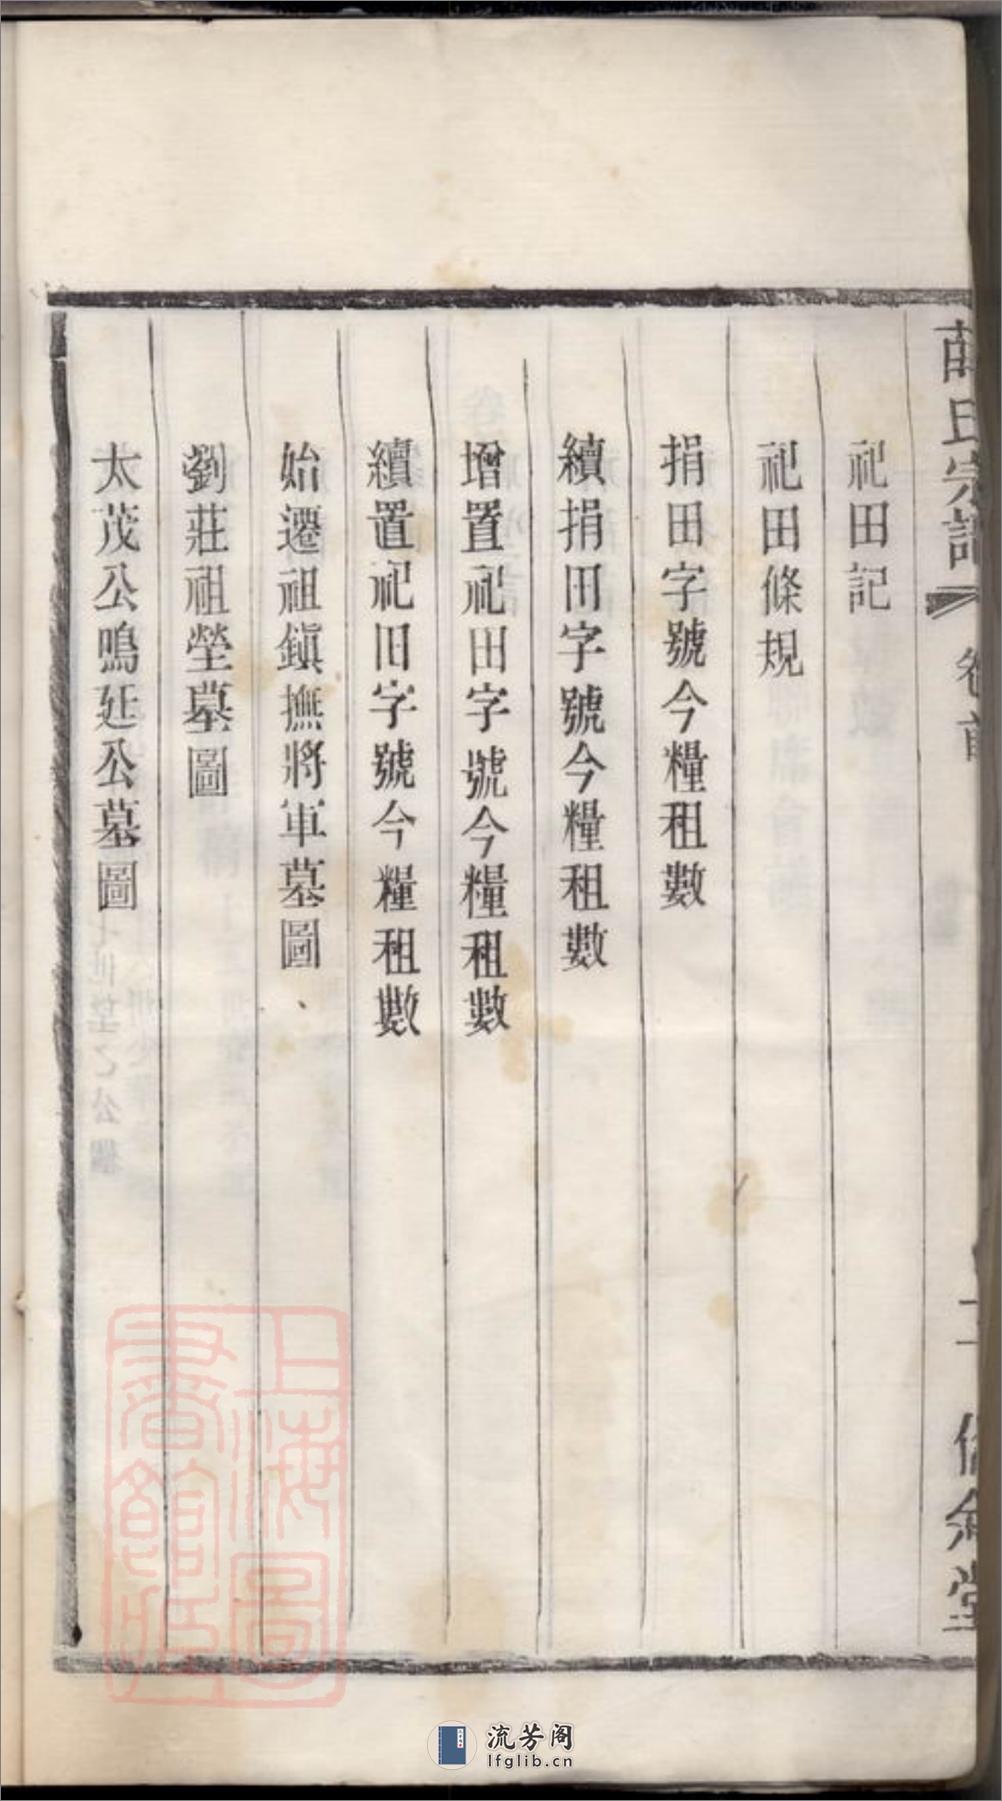 氏宗譜 卷首 堂
祀田記
祀田條規
捐田字號今糧租數
續捐田字號今糧租數
增置祀田字號今糧租數
續置祀田字號今糧租數
始遷祖鎮撫將軍墓圖
劉莊祖塋墓圖
太茂公鳴廷公墓圖
上海圖
書館藏
流芳阁
lfglib.cn